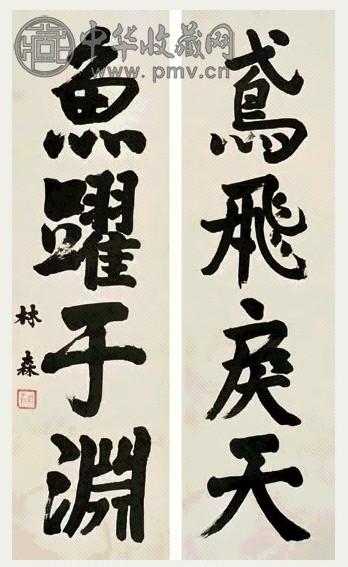 中华收藏网
www.pmv.cn
鳶飛戾天
魚躍于淵
林森